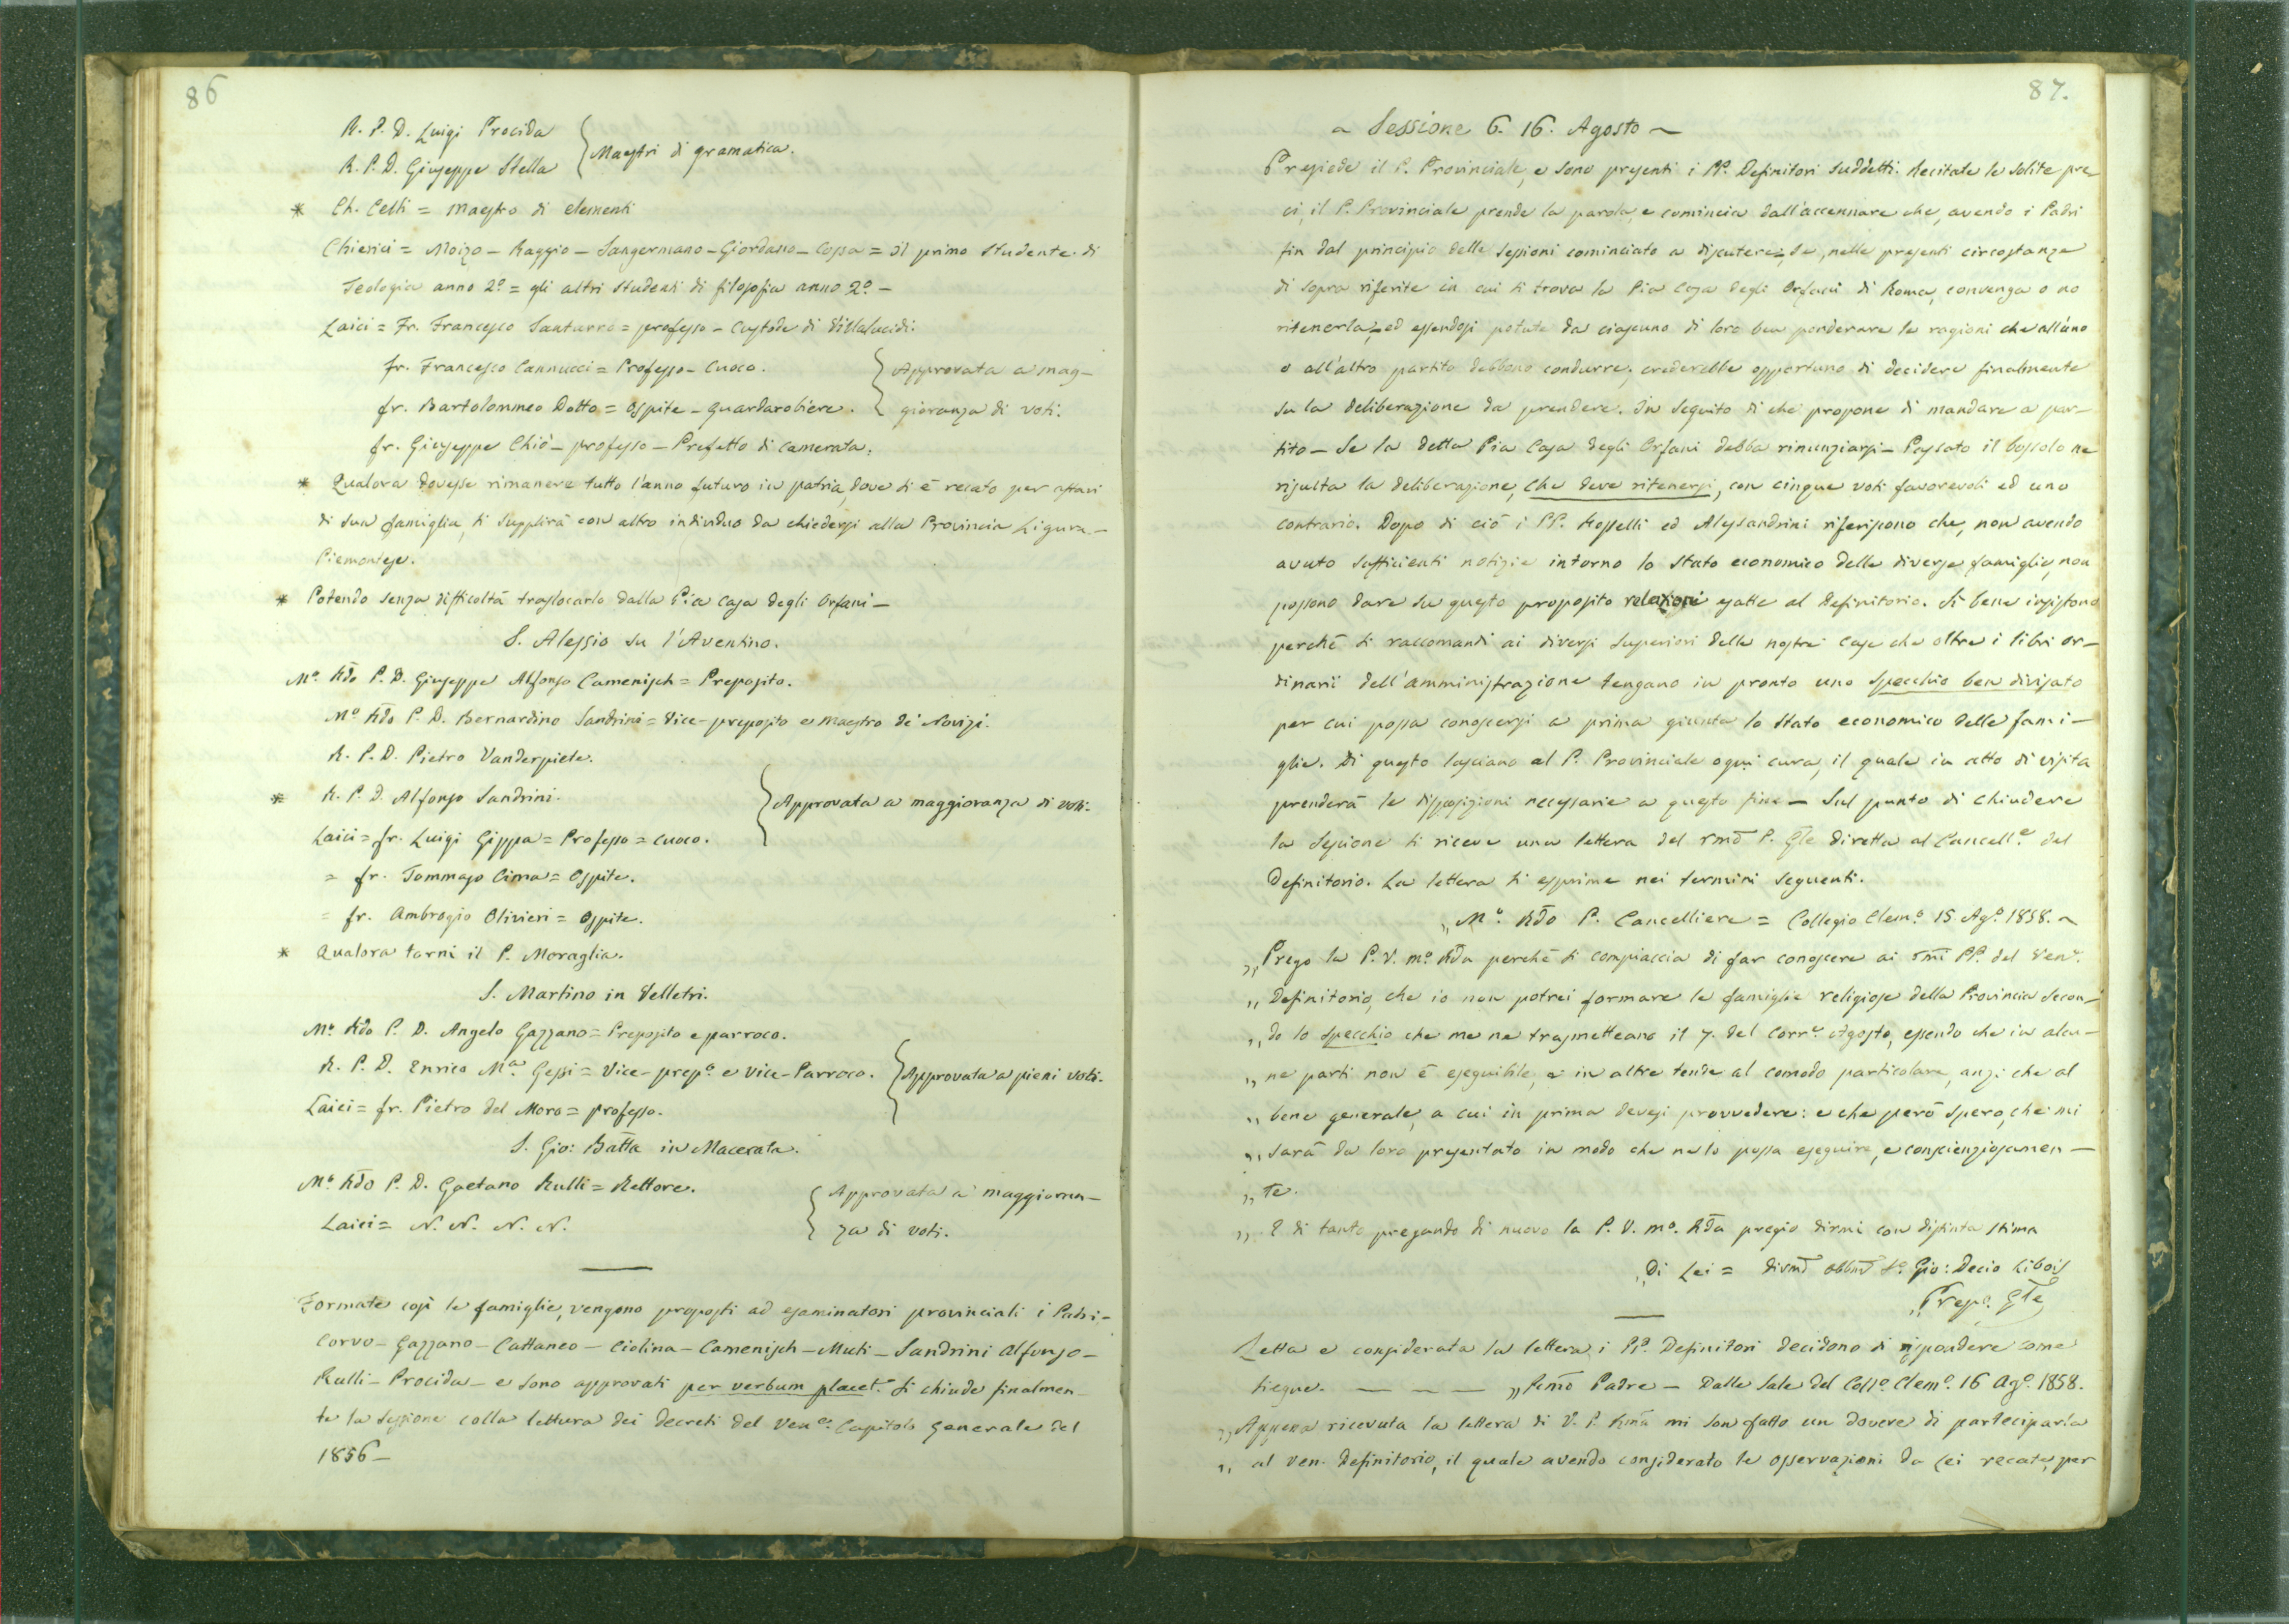 86
R. P. D. Luigi Procida
R. P. D. Giuseppe Stella
Maestri di gramatica.
* Ch. Celli = Maestro di elementi
Chierici = Moizo - Raggio - Sangermano - Giordano - Cossa = Il primo studente di
Teologia anno 2º = gli altri studenti di filosofia anno 2º -
Laici = Fr. Francesco Santurro = professo - Custode di Villalucidi.
fr. Francesco Cannucci = Professo - Cuoco.
fr. Bartolommeo Dotto = Ospite - guardarobiere.
Approvata a mag-
gioranza di voti.
fr. Giuseppe Chiò - professo - Prefetto di Camerata.
* Qualora dovesse rimanere tutto l'anno futuro in patria, dove si è recato per affari
di sua famiglia, si supplirà con altro individuo da chiedersi alla Provincia Ligure-
Piemontese.
* Potendo senza difficoltà traslocarlo dalla Pia Casa degli Orfani -
S. Alessio su l'Aventino.
Mº. Rdo P. D. Giuseppe Alfonso Camenisch = Preposito.
Mº Rdo P. D. Bernardino Sandrini = Vice-preposito e Maestro de' Novizi.
R. P. D. Pietro Vanderpiete.
* R. P. D. Alfonso Sandrini.
Laici = fr. Luigi Gippa = Professo = cuoco.
Approvata a maggioranza di voti.
= fr. Tommaso Cima = Ospite.
= fr. Ambrogio Olivieri = Ospite.
* Qualora torni il P. Moraglia.
S. Martino in Velletri.
Mº. Rdo P. D. Angelo Gazzano = Preposito e parroco.
R. P. D. Enrico Mª. Gessi = Vice-prepº. e Vice-Parroco.
Approvata a pieni voti.
Laici = fr. Pietro del Moro = professo.
S. Gio: Batta in Macerata.
Mº Rdo P. D. Gaetano Rulli = Rettore.
Laici = N. N. N. N.
Approvata a maggioran-
za di voti.
Formate così le famiglie, vengono proposti ad esaminatori provinciali i Padri -
Corvo - Gazzano - Cattaneo - Ciolina - Camenisch - Muti - Sandrini Alfonso -
Rulli - Procida - e sono approvati per verbum placet. Si chiude finalmen-
te la sessione colla lettura dei decreti del Vene. Capitolo Generale del
1856 -
87.
~ Sessione 6. 16. Agosto ~
Presiede il P. Provinciale, e sono presenti i PP. Definitori suddetti. Recitate le solite pre-
ci, il P. Provinciale prende la parola, e comincia dall'accennare che, avendo i Padri
fin dal principio delle sessioni cominciato a discutere, se, nelle presenti circostanze
di sopra riferite in cui si trova la Pia Casa degli Orfani di Roma, convenga o no
ritenerla, ed essendosi potute da ciascuno di loro ben ponderare le ragioni che all'uno
o all'altro partito debbono condurre, crederebbe opportuno di decidere finalmente
su la deliberazione da prendere. In seguito di che propone di mandare a par-
tito - Se la detta Pia Casa degli Orfani debba rinunziarsi - Passato il bossolo ne
risulta la deliberazione, che deve ritenersi, con cinque voti favorevoli ed uno
contrario. Dopo di ciò i PP. Rosselli ed Alessandrini riferiscono che, non avendo
avuto sufficienti notizie intorno lo stato economico delle diverse famiglie, non
possono dare su questo proposito relazioni esatte al Definitorio. Sì bene insistono
perchè si raccomandi ai diversi Superiori delle nostre case che oltre i libri or-
dinarii dell'amministrazione tengano in pronto uno specchio ben divisato
per cui possa conoscersi a prima giunta lo stato economico delle fami-
glie. Di questo lasciano al P. Provinciale ogni cura, il quale in atto di visita
prenderà le disposizioni necessarie a questo fine - Sul punto di chiudere
la sessione si riceve una lettera del rmo P. Gle diretta al Cancelle. del
Definitorio. La lettera si esprime nei termini seguenti.
„ Mº. Rdo P. Cancelliere = Collegio Clemº. 15. Agº. 1858. ~
„ Prego la P. V. mº. Rda perchè si compiaccia di far conoscere ai rmi PP. del Vene.
„ Definitorio, che io non potrei formare le famiglie religiose della Provincia secon-
„ do lo specchio che me ne trasmetteano il 7. del corre. Agosto, essendo che in alcu-
„ ne parti non è eseguibile, e in altre tende al comodo particolare, anzi che al
„ bene generale, a cui in prima devesi provvedere: e che però spero, che mi
„ sarà da loro presentato in modo che ne lo possa eseguire, e conscienziosamen-
„ te.
„ E di tanto pregando di nuovo la P. V. mº. Rda pregio dirmi con distinta stima
„ Di Lei = divmo obbmo Sº. Gio: Decio Libois
„ Prepº. Gle
Letta e considerata la lettera, i PP. Definitori decidono di rispondere come
siegue. - - - „ Rmo Padre - Dalle Sale del Collº. Clemº. 16 Agº. 1858.
„ Appena ricevuta la lettera di V. P. Rma mi son fatto un dovere di parteciparla
„ al Ven. Definitorio, il quale avendo considerato le osservazioni da Lei recate, per